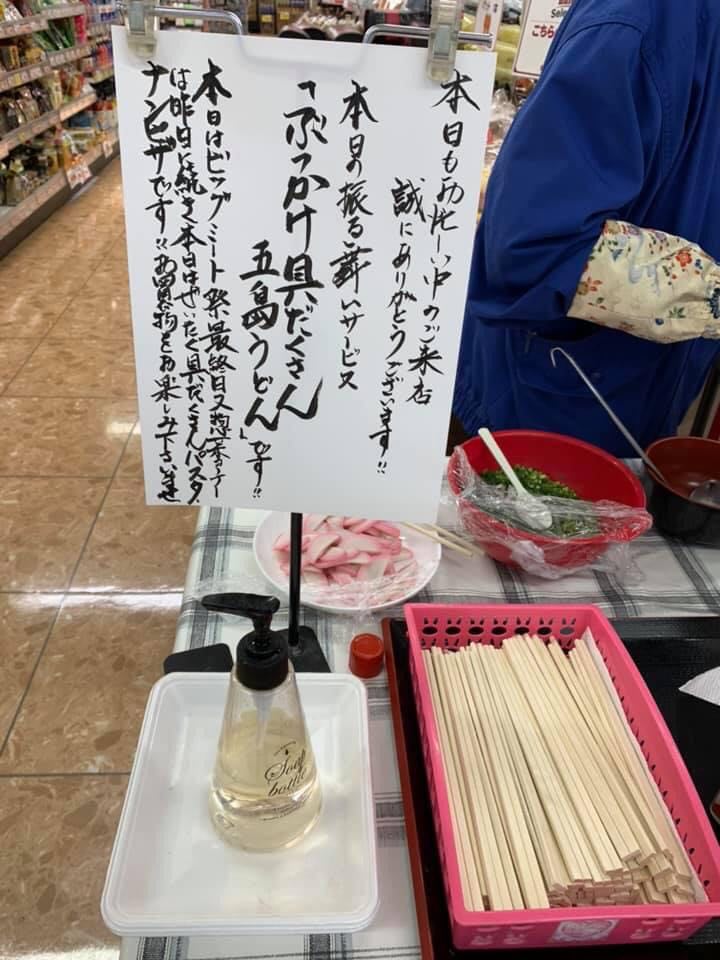 本日もお忙しい中のご来店
誠にありがとうございます!!
本日の振る舞いサービス
「ぶっかけ具だくさん
五島うどん」です!!
本日はビッグミート祭最終日又惣菜コーナー
は昨日に続き本日はぜいたく具だくさんパスタ、
ナンピザです!!お買物をお楽しみ下さいませ
こちら
Soap
bottle